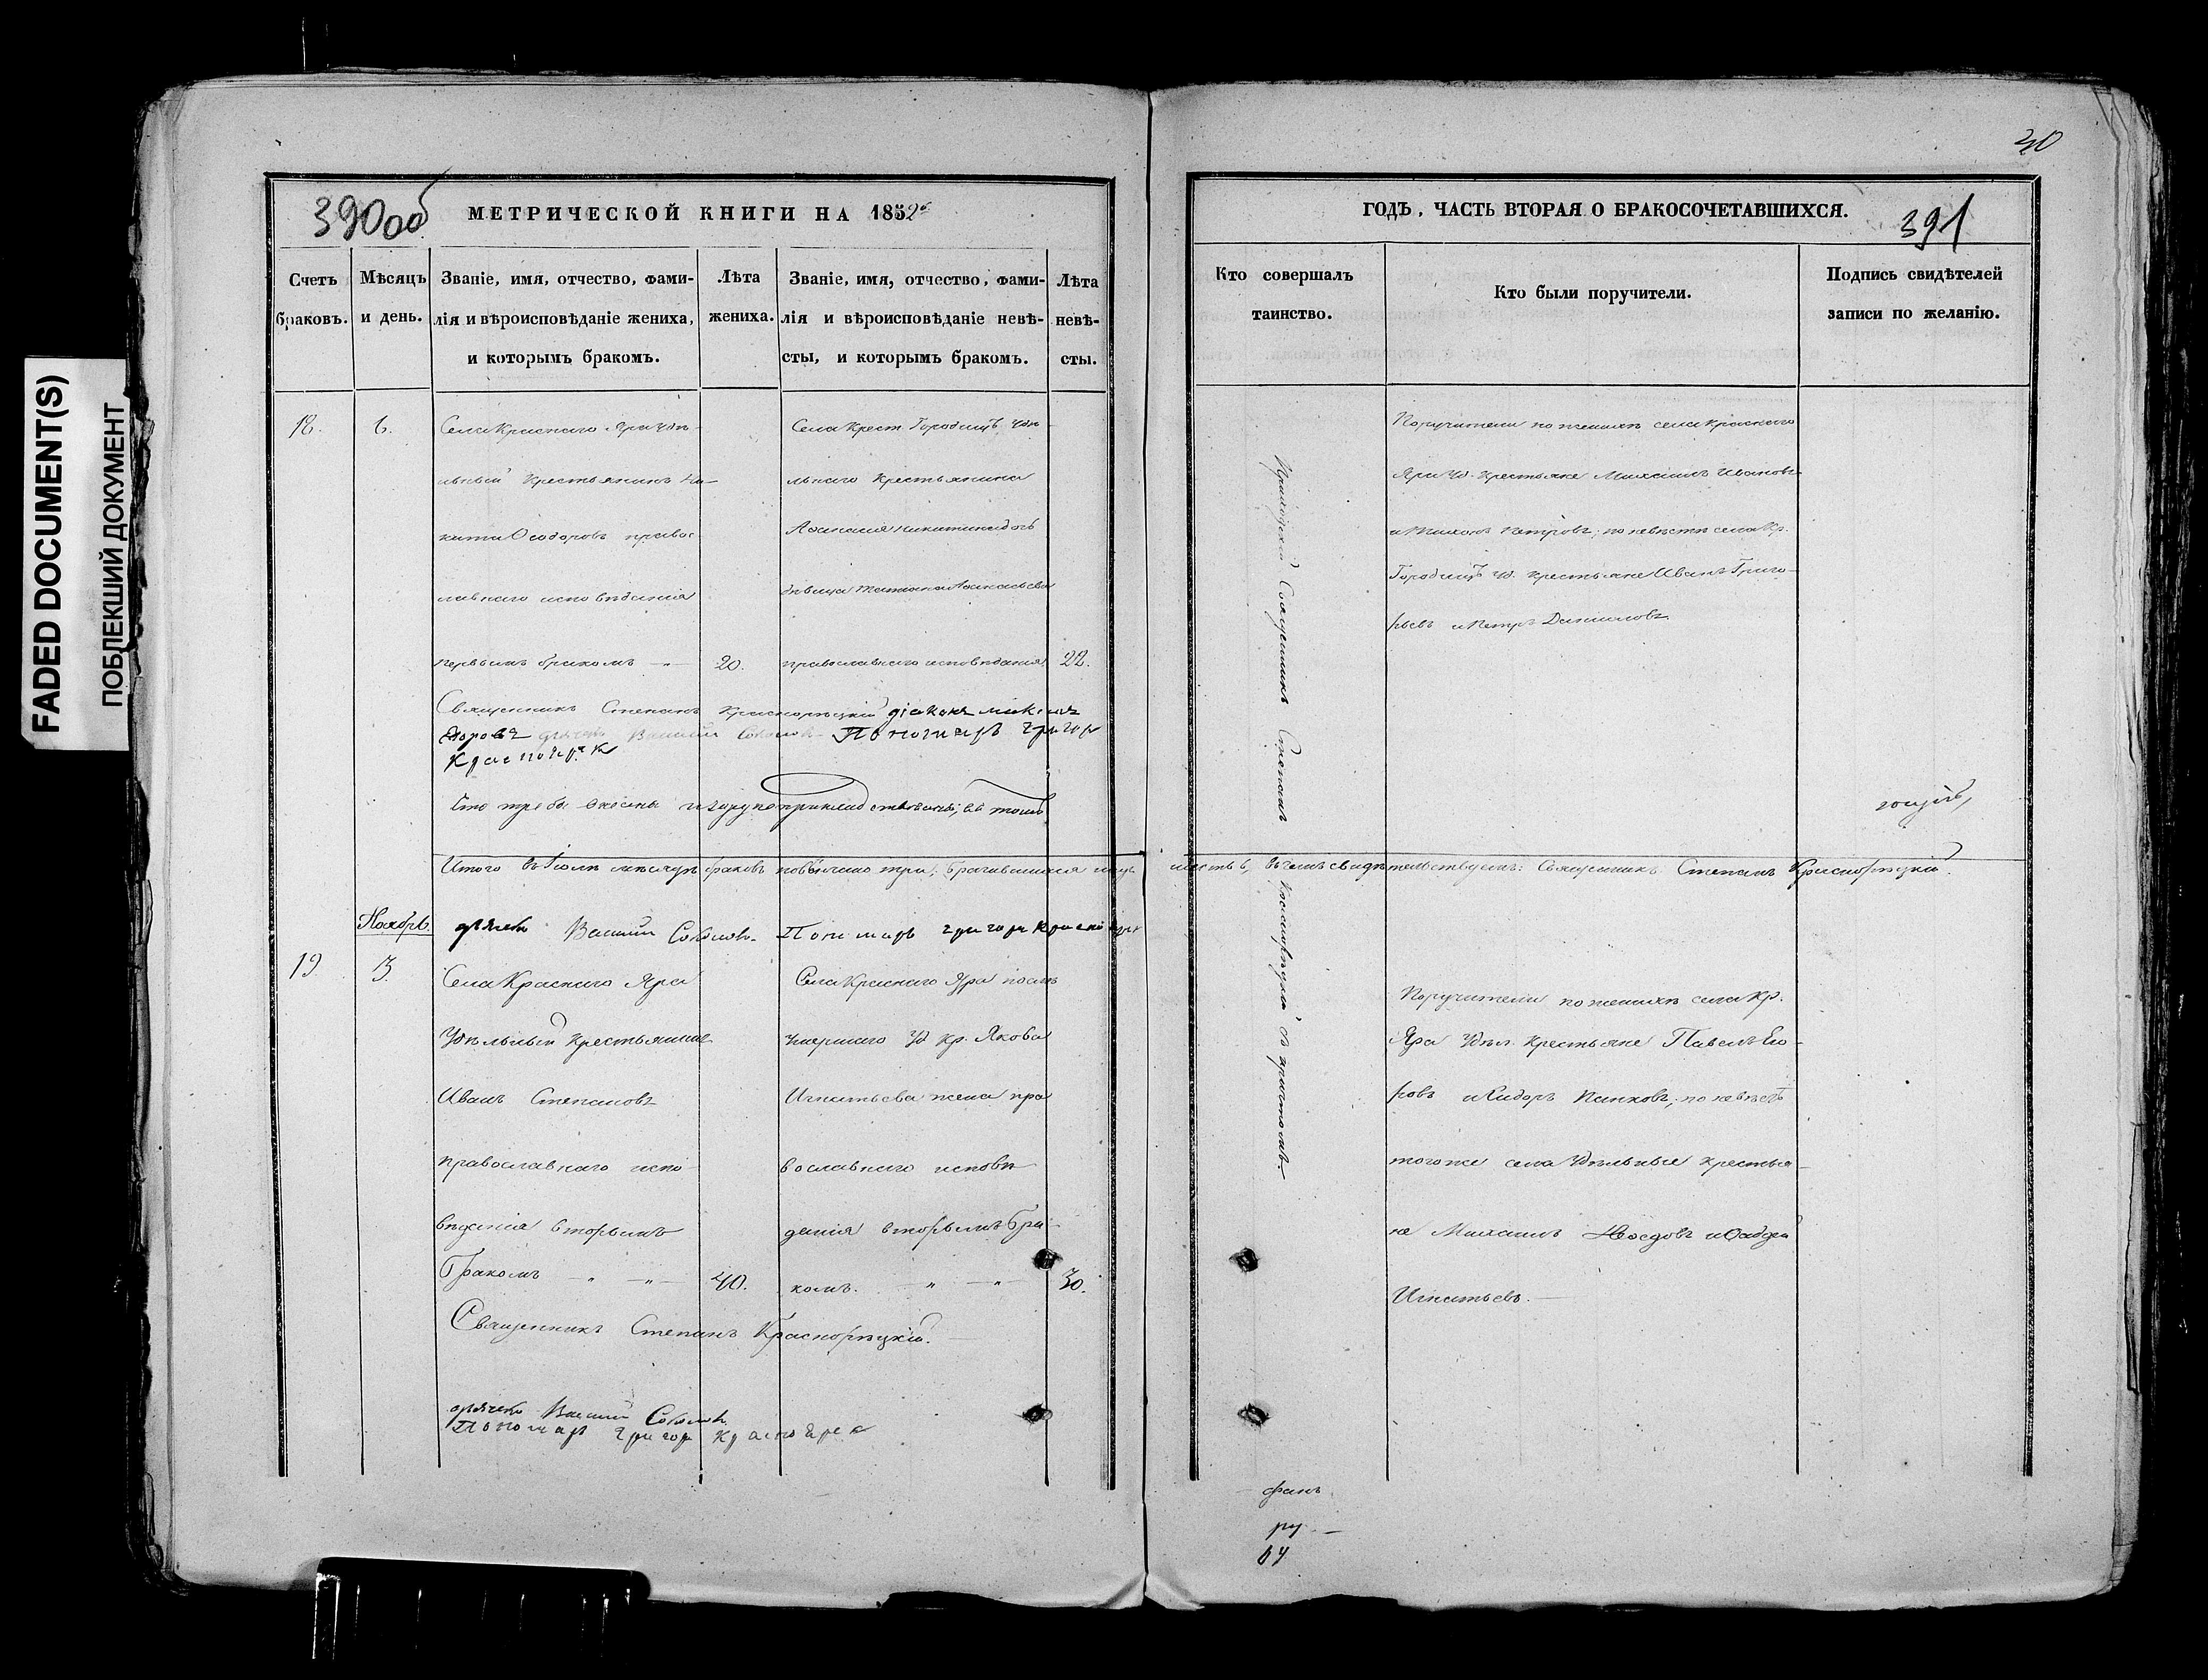 FADED DOCUMENT(S)
ПОБЛЕКШИЙ ДОКУМЕНТ
390об
МЕТРИЧЕСКОЙ КНИГИ НА 1852
Счетъ браковъ.
Мѣсяцъ и день.
Званіе, имя, отчество, фами-
лія и вѣроисповѣданіе жениха,
и которымъ бракомъ.
Лѣта
жениха.
Званіе, имя, отчество, фами-
лія и вѣроисповѣданіе невѣ-
сты, и которымъ бракомъ.
Лѣта
невѣ-
сты.
18.
6.
Села Краснаго Яра Удѣ-
льный Крестьянинъ Ни-
кита Ѳеодоровъ правос
лавнаго исповѣданія
первымъ бракомъ
20.
Села Крест. Городищъ Удѣ
льнаго Крестьянина
Аѳанасія Никитина дочь
дѣвица Татіана Аѳанасьева
православнаго исповѣданія
22.
Священникъ Степанъ Краснорѣцкій діаконъ
дьячекъ Василій Соколов Пономарь Григор
Итого въ Іюлѣ мѣсяцѣ браковъ повѣнчано три;
Ноябрь.
дьячекъ Василій Соколов. Пономарь Григори
19
3.
Села Краснаго Яра
Удѣльный Крестьянинъ
Иванъ Степановъ
православнаго испо
вѣданія вторымъ
Бракомъ
40.
Села Краснаго Яра послѣ
умершаго Уд Кр. Якова
Игнатьева жена пра
вославнаго исповѣ
данія вторымъ Бра-
комъ.
30.
Священникъ Степанъ Краснорѣцкій.
дьячекъ Василій Соколов
Пономарь Григор
40
ГОДЪ, ЧАСТЬ ВТОРАЯ О БРАКОСОЧЕТАВШИХСЯ.
391
Кто совершалъ
таинство.
Кто были поручители.
Подпись свидѣтелей
записи по желанію.
Приходскій Священникъ Степанъ Краснорѣцкій съ причтомъ.
Поручители по женихѣ села Краснаго
Яра Уд. Крестьяне Михаилъ Ивановъ
и Тихонъ Петровъ; по невѣстѣ села Кр.
Городищъ Уд. Крестьяне Иванъ Григо-
рьевъ и Петръ Даниловъ
въ чемъ свидѣтельствуемъ: Священникъ Степанъ Краснорѣцкій.
Поручители по женихѣ села Кр.
Яра Удѣл. Крестьяне Павелъ Его-
ровъ и Сидоръ Панковъ; по невѣстѣ
тогоже села Удѣльные крестья-
не Михаилъ
Игнатьевъ.